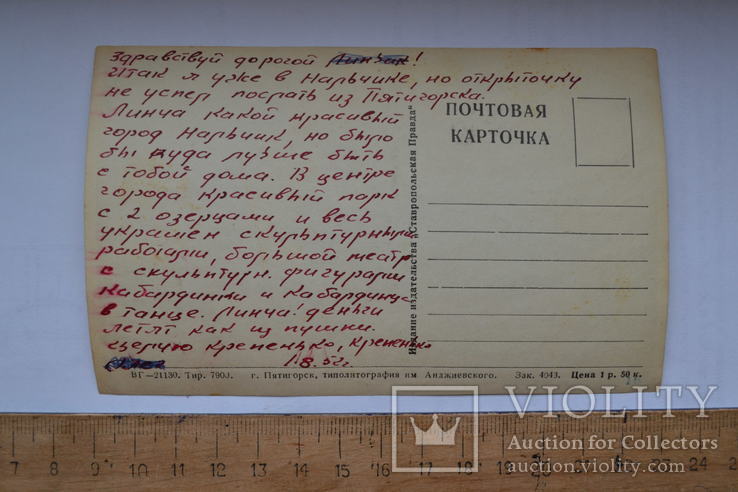 Здравствуй дорогой !
Итак я уже в Нальчике, но открыточку
не успел послать из Пятигорска.
Линча какой красивый
город Нальчик, но было
бы куда лучше быть
с тобой дома. В центре
города красивый парк
с 2 озерцами и весь
украшен скульптурными
работами, большой театр
с скульптурн. фигурами
кабардинки и кабардинца
в танце. Линча! деньги
летят как из пушки.
Целую крепенько, крепенько
1.8.52г.
ПОЧТОВАЯ
КАРТОЧКА
Издание издательства „Ставропольская Правда“
ВГ—21130. Тир. 7900. г. Пятигорск, типолитография им Анджиевского. Зак. 4943. Цена 1 р. 50 к.
VIOLITY
Auction for Collectors
auction.violity.com
7 8 9 10 11 12 13 14 15 16 17 18 19 20 21 22 23 24 25